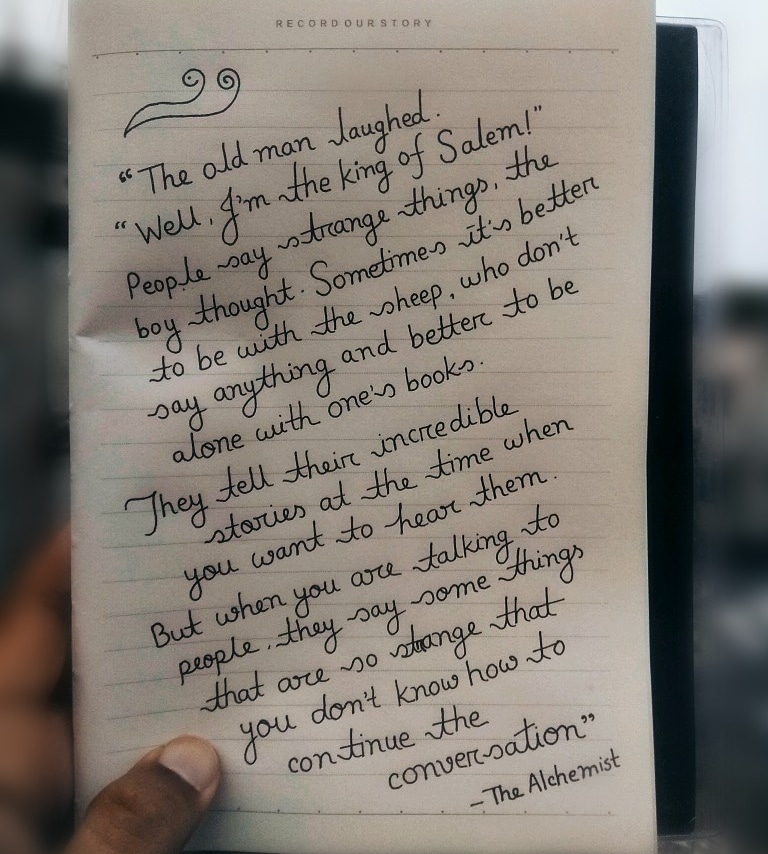 RECORD OUR STORY
“The old man laughed.
“Well, I'm the king of Salem!”
People say strange things, the
boy thought. Sometimes it's better
to be with the sheep, who don't
say anything and better to be
alone with one's books.
They tell their incredible
stories at the time when
you want to hear them.
But when you are talking to
people, they say some things
that are so strange that
you don't know how to
continue the
conversation”
–The Alchemist